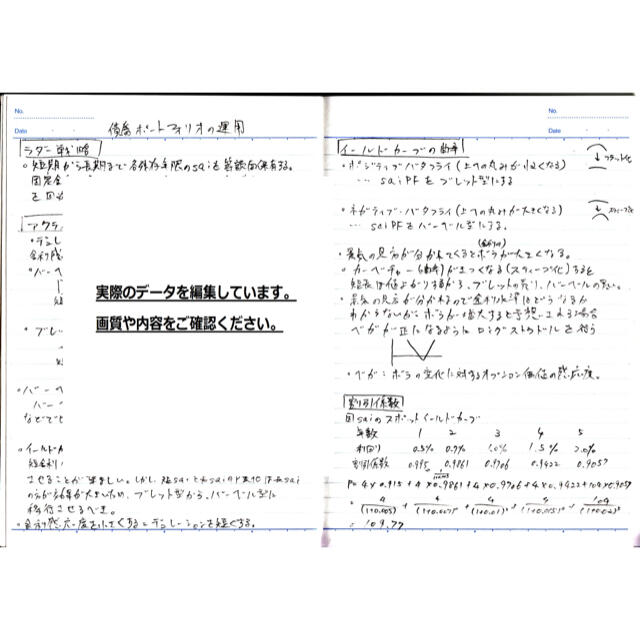 No.
Date
債券ポートフォリオの運用
ラダー戦略
・短期から長期まで各残存年限のsaiを等額面保有する。
固定金
を回
アクテ
・デュレ
金利感
・バー
・ブレ
・バーベ
バーベ
などでと
・イールドカ
短金利
させることが望ましい。しかし
の方が影響が大きいため、ブレット型から、バーベル型に
移行させるべき。
・金利感応度を小さくする=デュレーションを短くする。
実際のデータを編集しています。
画質や内容をご確認ください。
No.
Date
イールドカーブの曲率
・ポジティブバタフライ(上への丸みが小さくなる)
… saiPFをブレット型にする
フラット化
・ネガティブ・バタフライ(上への丸みが大きくなる)
… saiPFをバーベル型にする。
スティープ化
(金利の)
・景気の見方が分かれてくるとボラが大きくなる。
・カーベチャー(曲率)がきつくなる(スティープ化)すると
ブレットの売り、バーベルの買い。
・景気の見方が分かれるので金利水準はどうなるか
わからないが、ボラが増大すると予想される場合
ベガが正になるようにロングストラドルを買う
・ベガ:ボラの変化に対するオプション価値の感応度。
割引係数
国saiのスポットイールドカーブ
年数 1 2 3 4 5
利回り 0.5% 0.7% 1.0% 1.5% 2.0%
割引係数 0.995 0.9861 0.9706 0.9422 0.9057
P=4×0.995+4×0.9861+4×0.9706+4×0.9422+104×0.9057
= 4/(1+0.005) + 4/(1+0.007)² + 4/(1+0.01)³ + 4/(1+0.015)⁴ + 104/(1+0.02)⁵
= 109.77